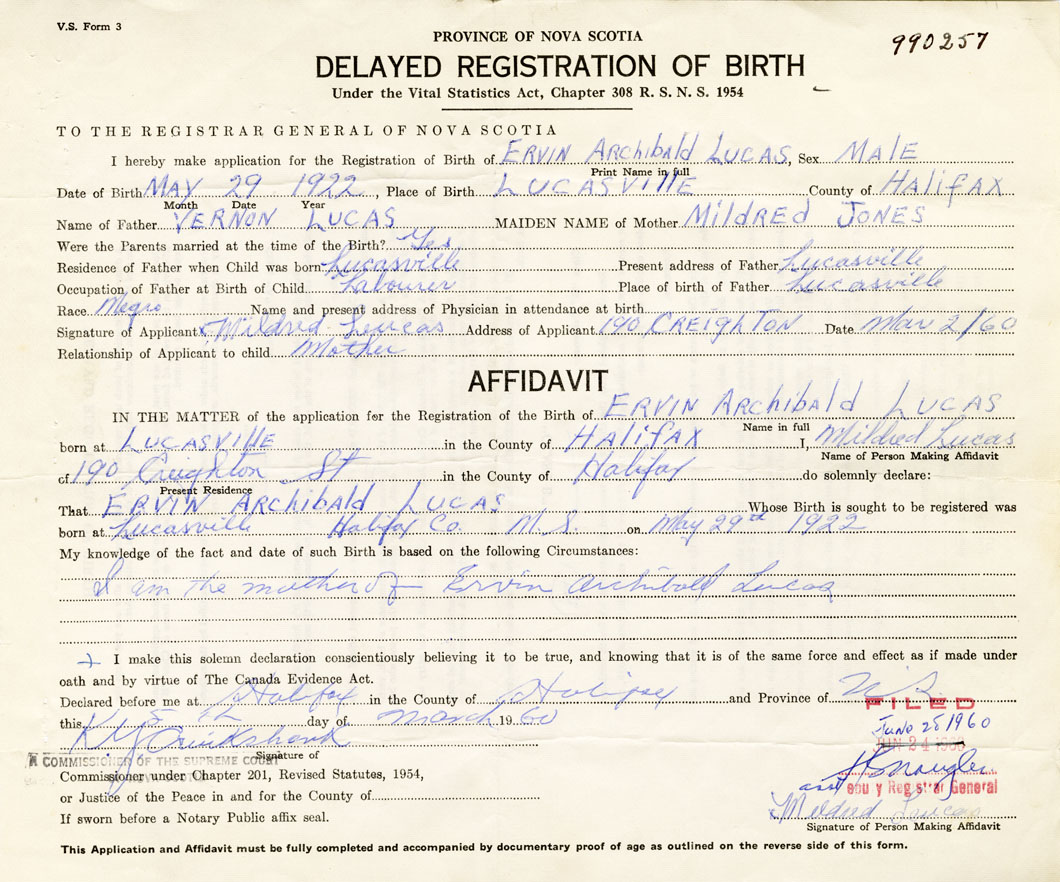 V.S. Form 3
PROVINCE OF NOVA SCOTIA
990257
DELAYED REGISTRATION OF BIRTH
Under the Vital Statistics Act, Chapter 308 R. S. N. S. 1954
TO THE REGISTRAR GENERAL OF NOVA SCOTIA
I hereby make application for the Registration of Birth of ERVIN ARChIbAld LUCAS, Sex MALE
Print Name in full
Date of Birth MAY 29 1922, Place of Birth LUCASVIllE County of HAlIfAX
Month Date Year
Name of Father VERNON LUCAS MAIDEN NAME of Mother MIldRED JONES
Were the Parents married at the time of the Birth? Yes
Residence of Father when Child was born Lucasville Present address of Father Lucasville
Occupation of Father at Birth of Child Labourer Place of birth of Father Lucasville
Race Negro Name and present address of Physician in attendance at birth
Signature of Applicant x Mildred Lucas Address of Applicant 190 CREIGhTON Date Mar 2/60
Relationship of Applicant to child Mother
AFFIDAVIT
IN THE MATTER of the application for the Registration of the Birth of ERVIN ARChIbAld LUCAS
Name in full
born at LUCASVIllE in the County of HAlIfAX I, Mildred Lucas
Name of Person Making Affidavit
of 190 Creighton St in the County of Halifax do solemnly declare:
Present Residence
That ERVIN ARChIbAld LUCAS Whose Birth is sought to be registered was
born at Lucasville Halifax Co. N. S. on May 29th 1922
My knowledge of the fact and date of such Birth is based on the following Circumstances:
I am the mother of Ervin Archibald Lucas
I make this solemn declaration conscientiously believing it to be true, and knowing that it is of the same force and effect as if made under
oath and by virtue of The Canada Evidence Act.
Declared before me at Halifax in the County of Halifax and Province of N.S.
FILED
this day of March 1960
June 28 1960
A COMMISSIONER OF THE SUPREME COURT
Signature of
Commissioner under Chapter 201, Revised Statutes, 1954,
asst Deputy Registrar General
or Justice of the Peace in and for the County of
x Mildred Lucas
If sworn before a Notary Public affix seal.
Signature of Person Making Affidavit
This Application and Affidavit must be fully completed and accompanied by documentary proof of age as outlined on the reverse side of this form.